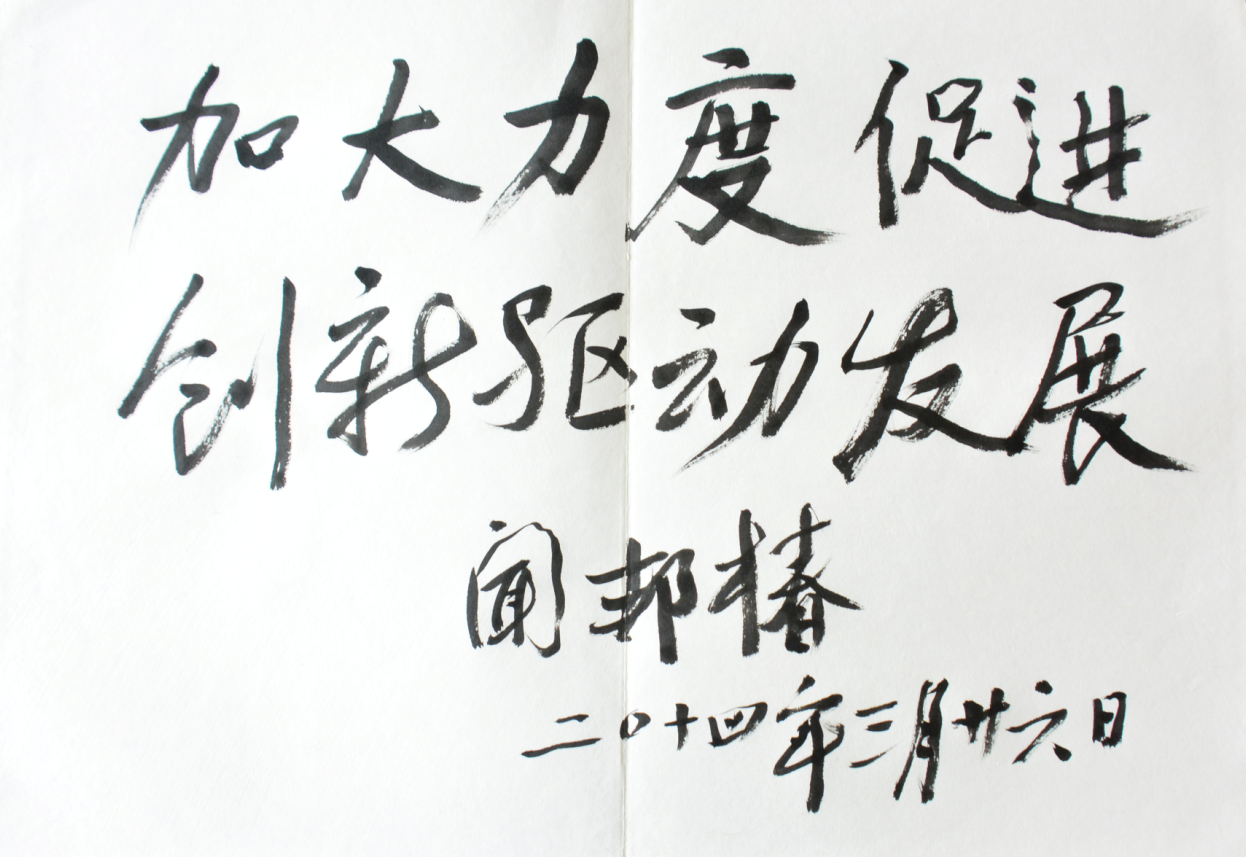 加大力度促进
创新驱动发展
闻邦椿
二〇十四年三月廿六日